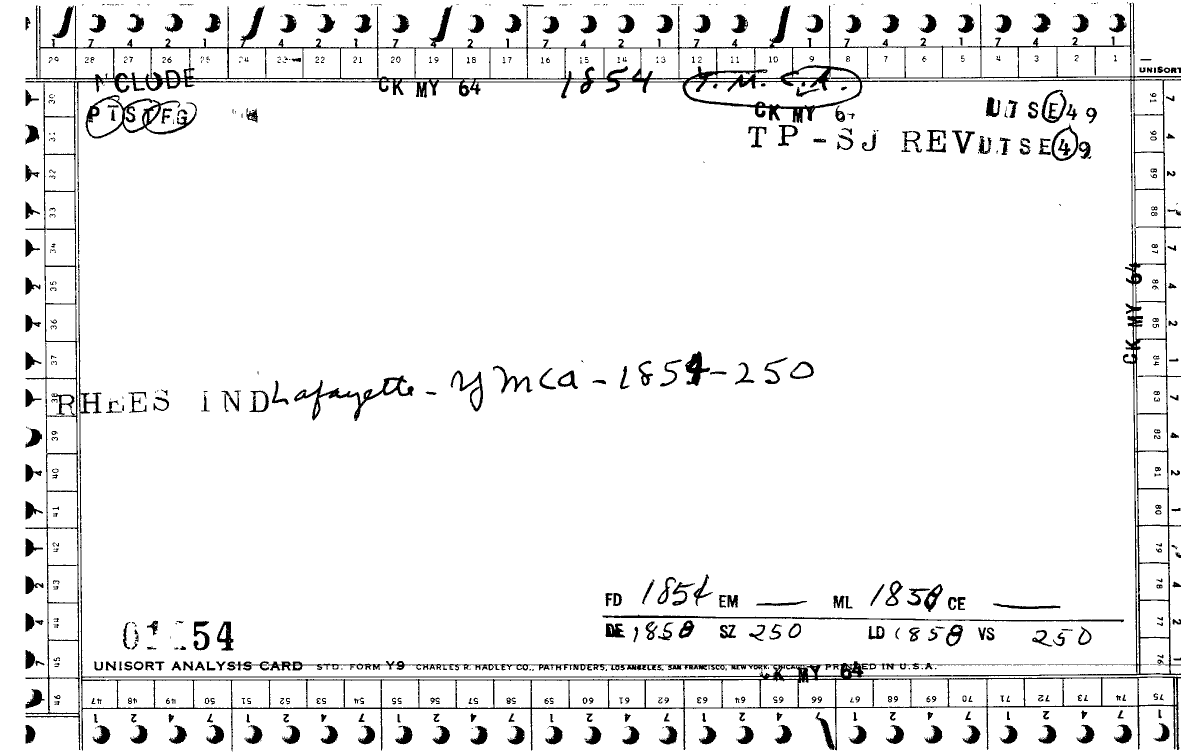 7 4 2 1 7 4 2 1 7 4 2 1 7 4 2 1 7 4 2 1 7 4 2 1 7 4 2 1
29 28 27 26 25 24 23 22 21 20 19 18 17 16 15 14 13 12 11 10 9 8 7 6 5 4 3 2 1
UNISORT
NCLUDE CK MY 64 1854 Y.M.C.A.
PTSTFG CK MY 64 UTSE49
TP-SJ REV UTSE49
CK MY 64
RHEES IND Lafayette - YMCA - 1854 - 250
FD 1854 EM — ML 1858 CE —
DE 1858 SZ 250 LD 1858 VS 250
54
UNISORT ANALYSIS CARD STD. FORM Y9 CHARLES R. HADLEY CO., PATHFINDERS, LOS ANGELES, SAN FRANCISCO, NEW YORK, CHICAGO PRINTED IN U.S.A.
CK MY 64
47 48 49 50 51 52 53 54 55 56 57 58 59 60 61 62 63 64 65 66 67 68 69 70 71 72 73 74 75